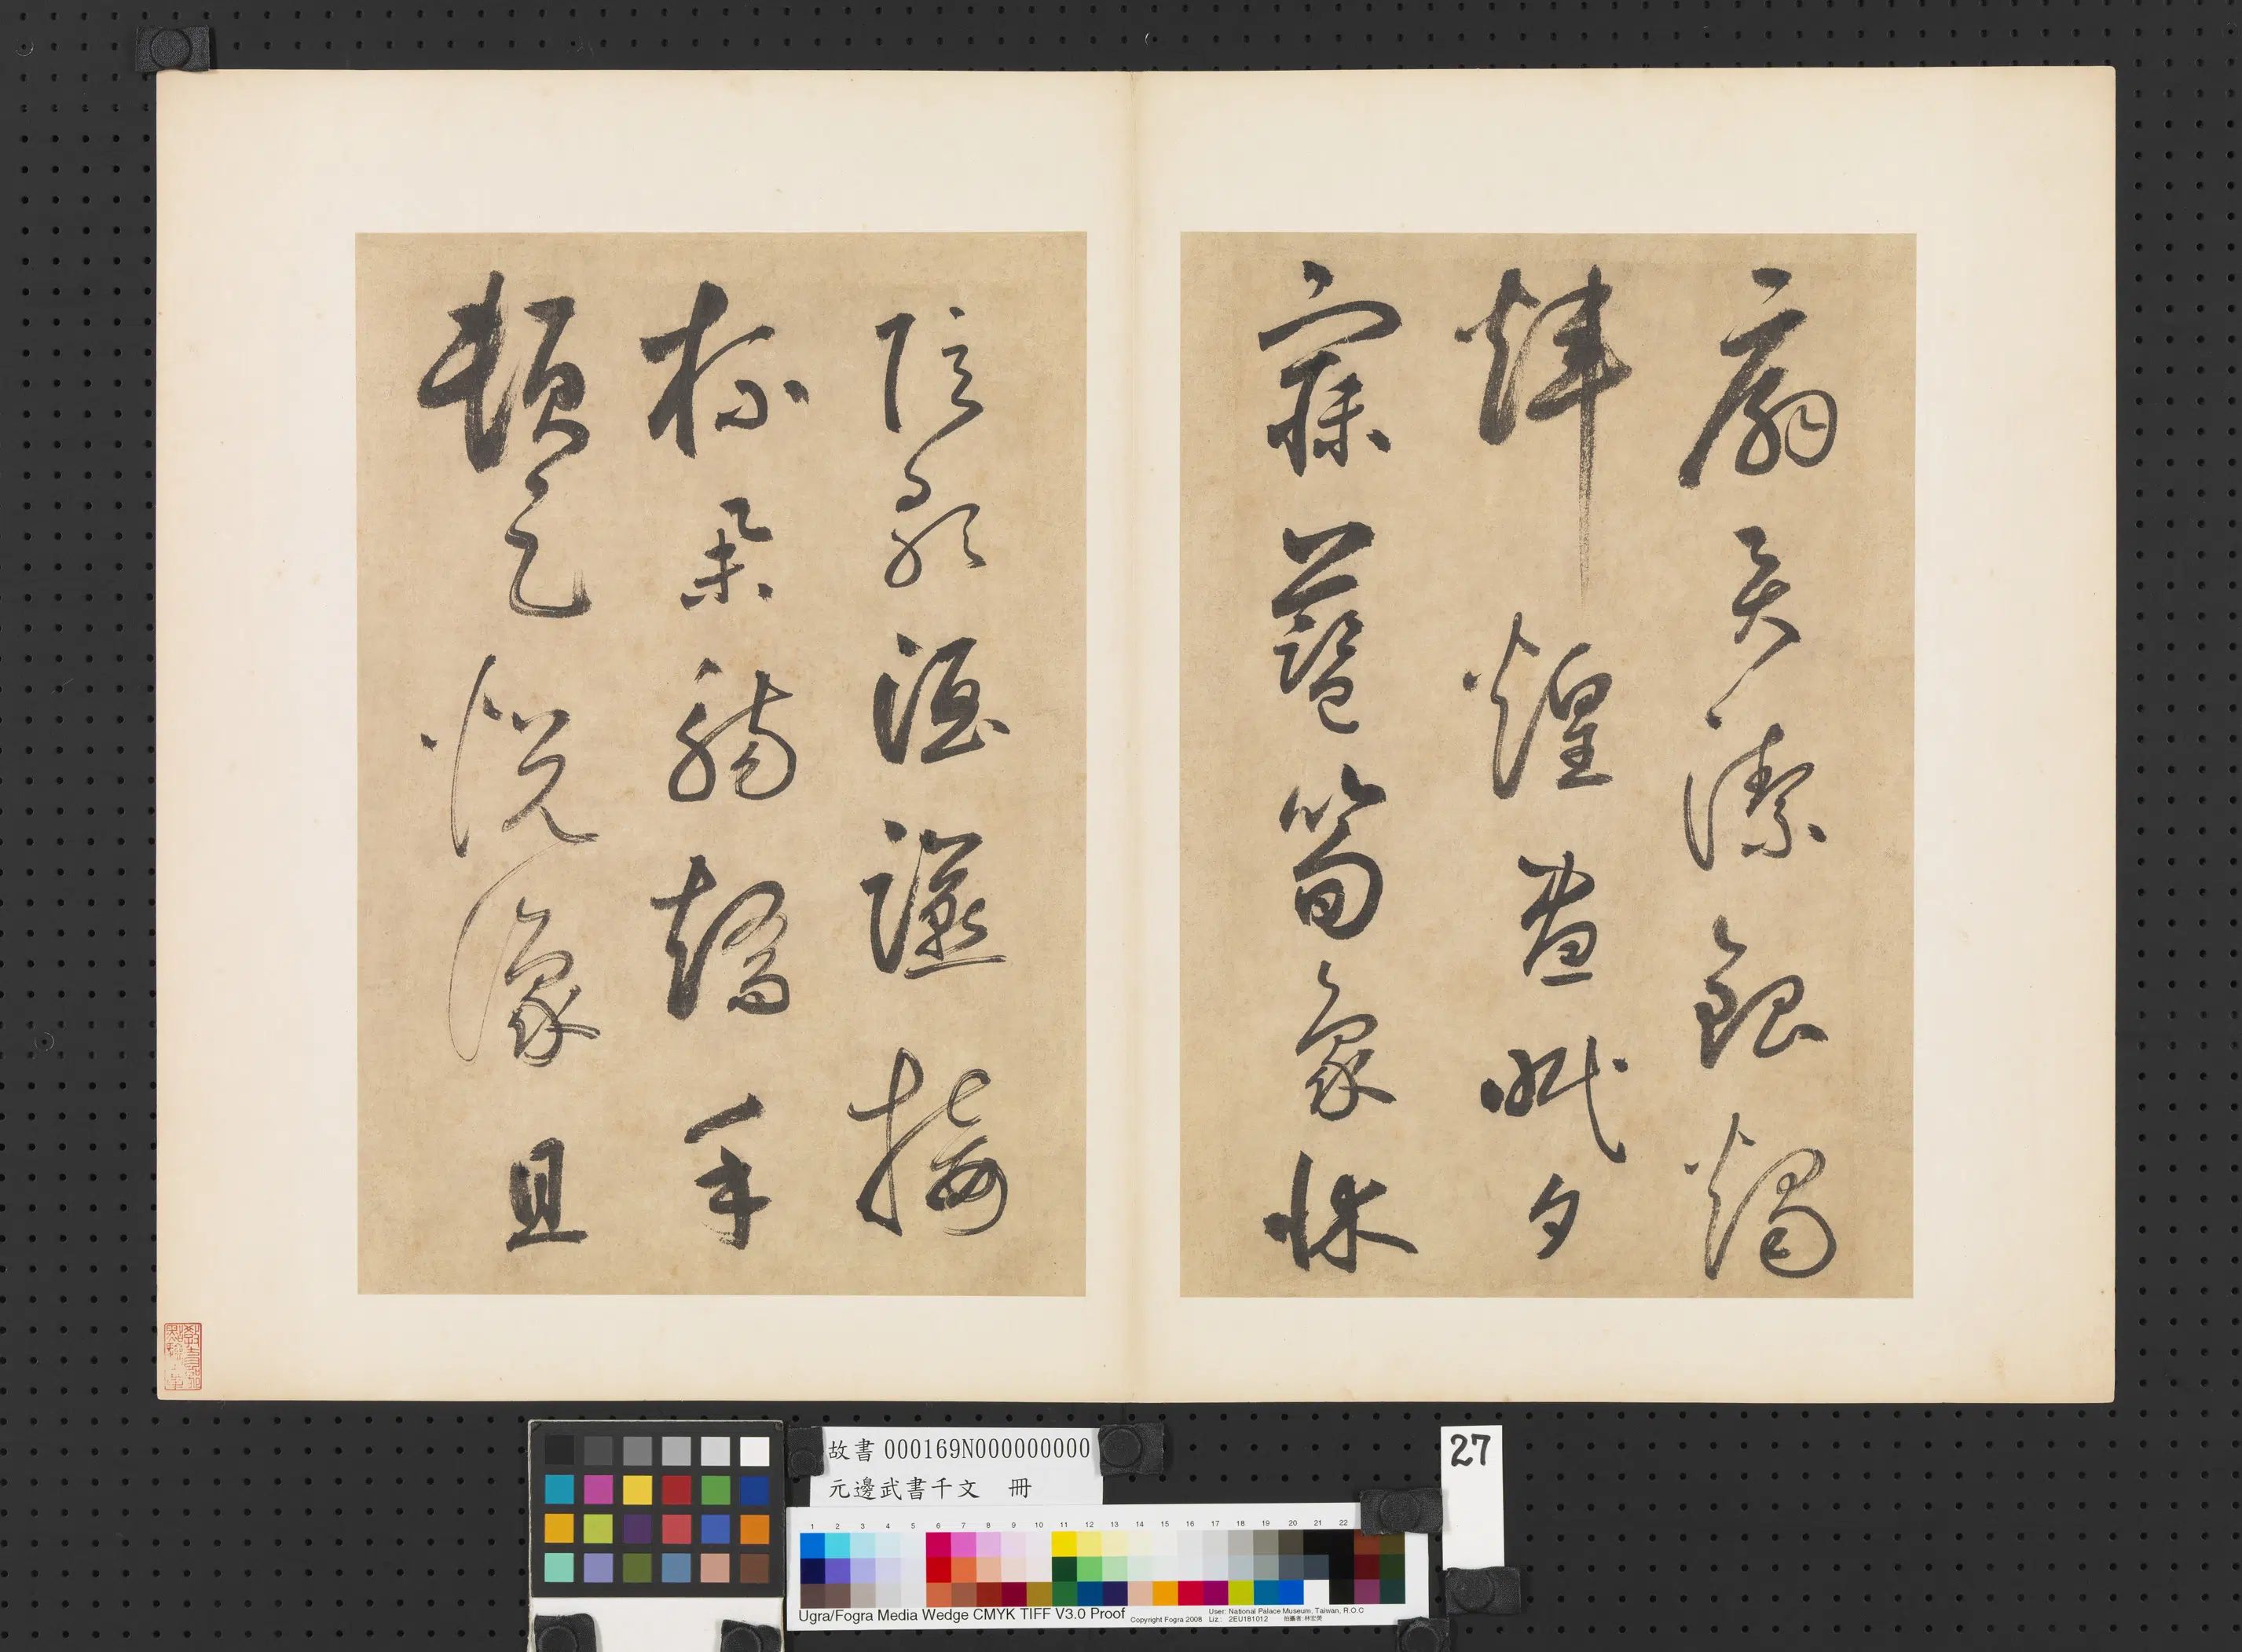 扇員潔銀燭
煒煌晝眠夕
寐藍筍象牀
弦歌酒讌接
杯舉觴矯手
頓足悅豫且
故書 000169N000000000
元邊武書千文 冊
27
1 2 3 4 5 6 7 8 9 10 11 12 13 14 15 16 17 18 19 20 21 22
Ugra/Fogra Media Wedge CMYK TIFF V3.0 Proof
Copyright Fogra 2008
User: National Palace Museum, Taiwan, R.O.C
Liz.: 2EU181012